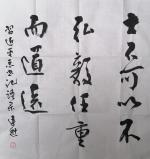 士不可以不
弘毅任重
而道远